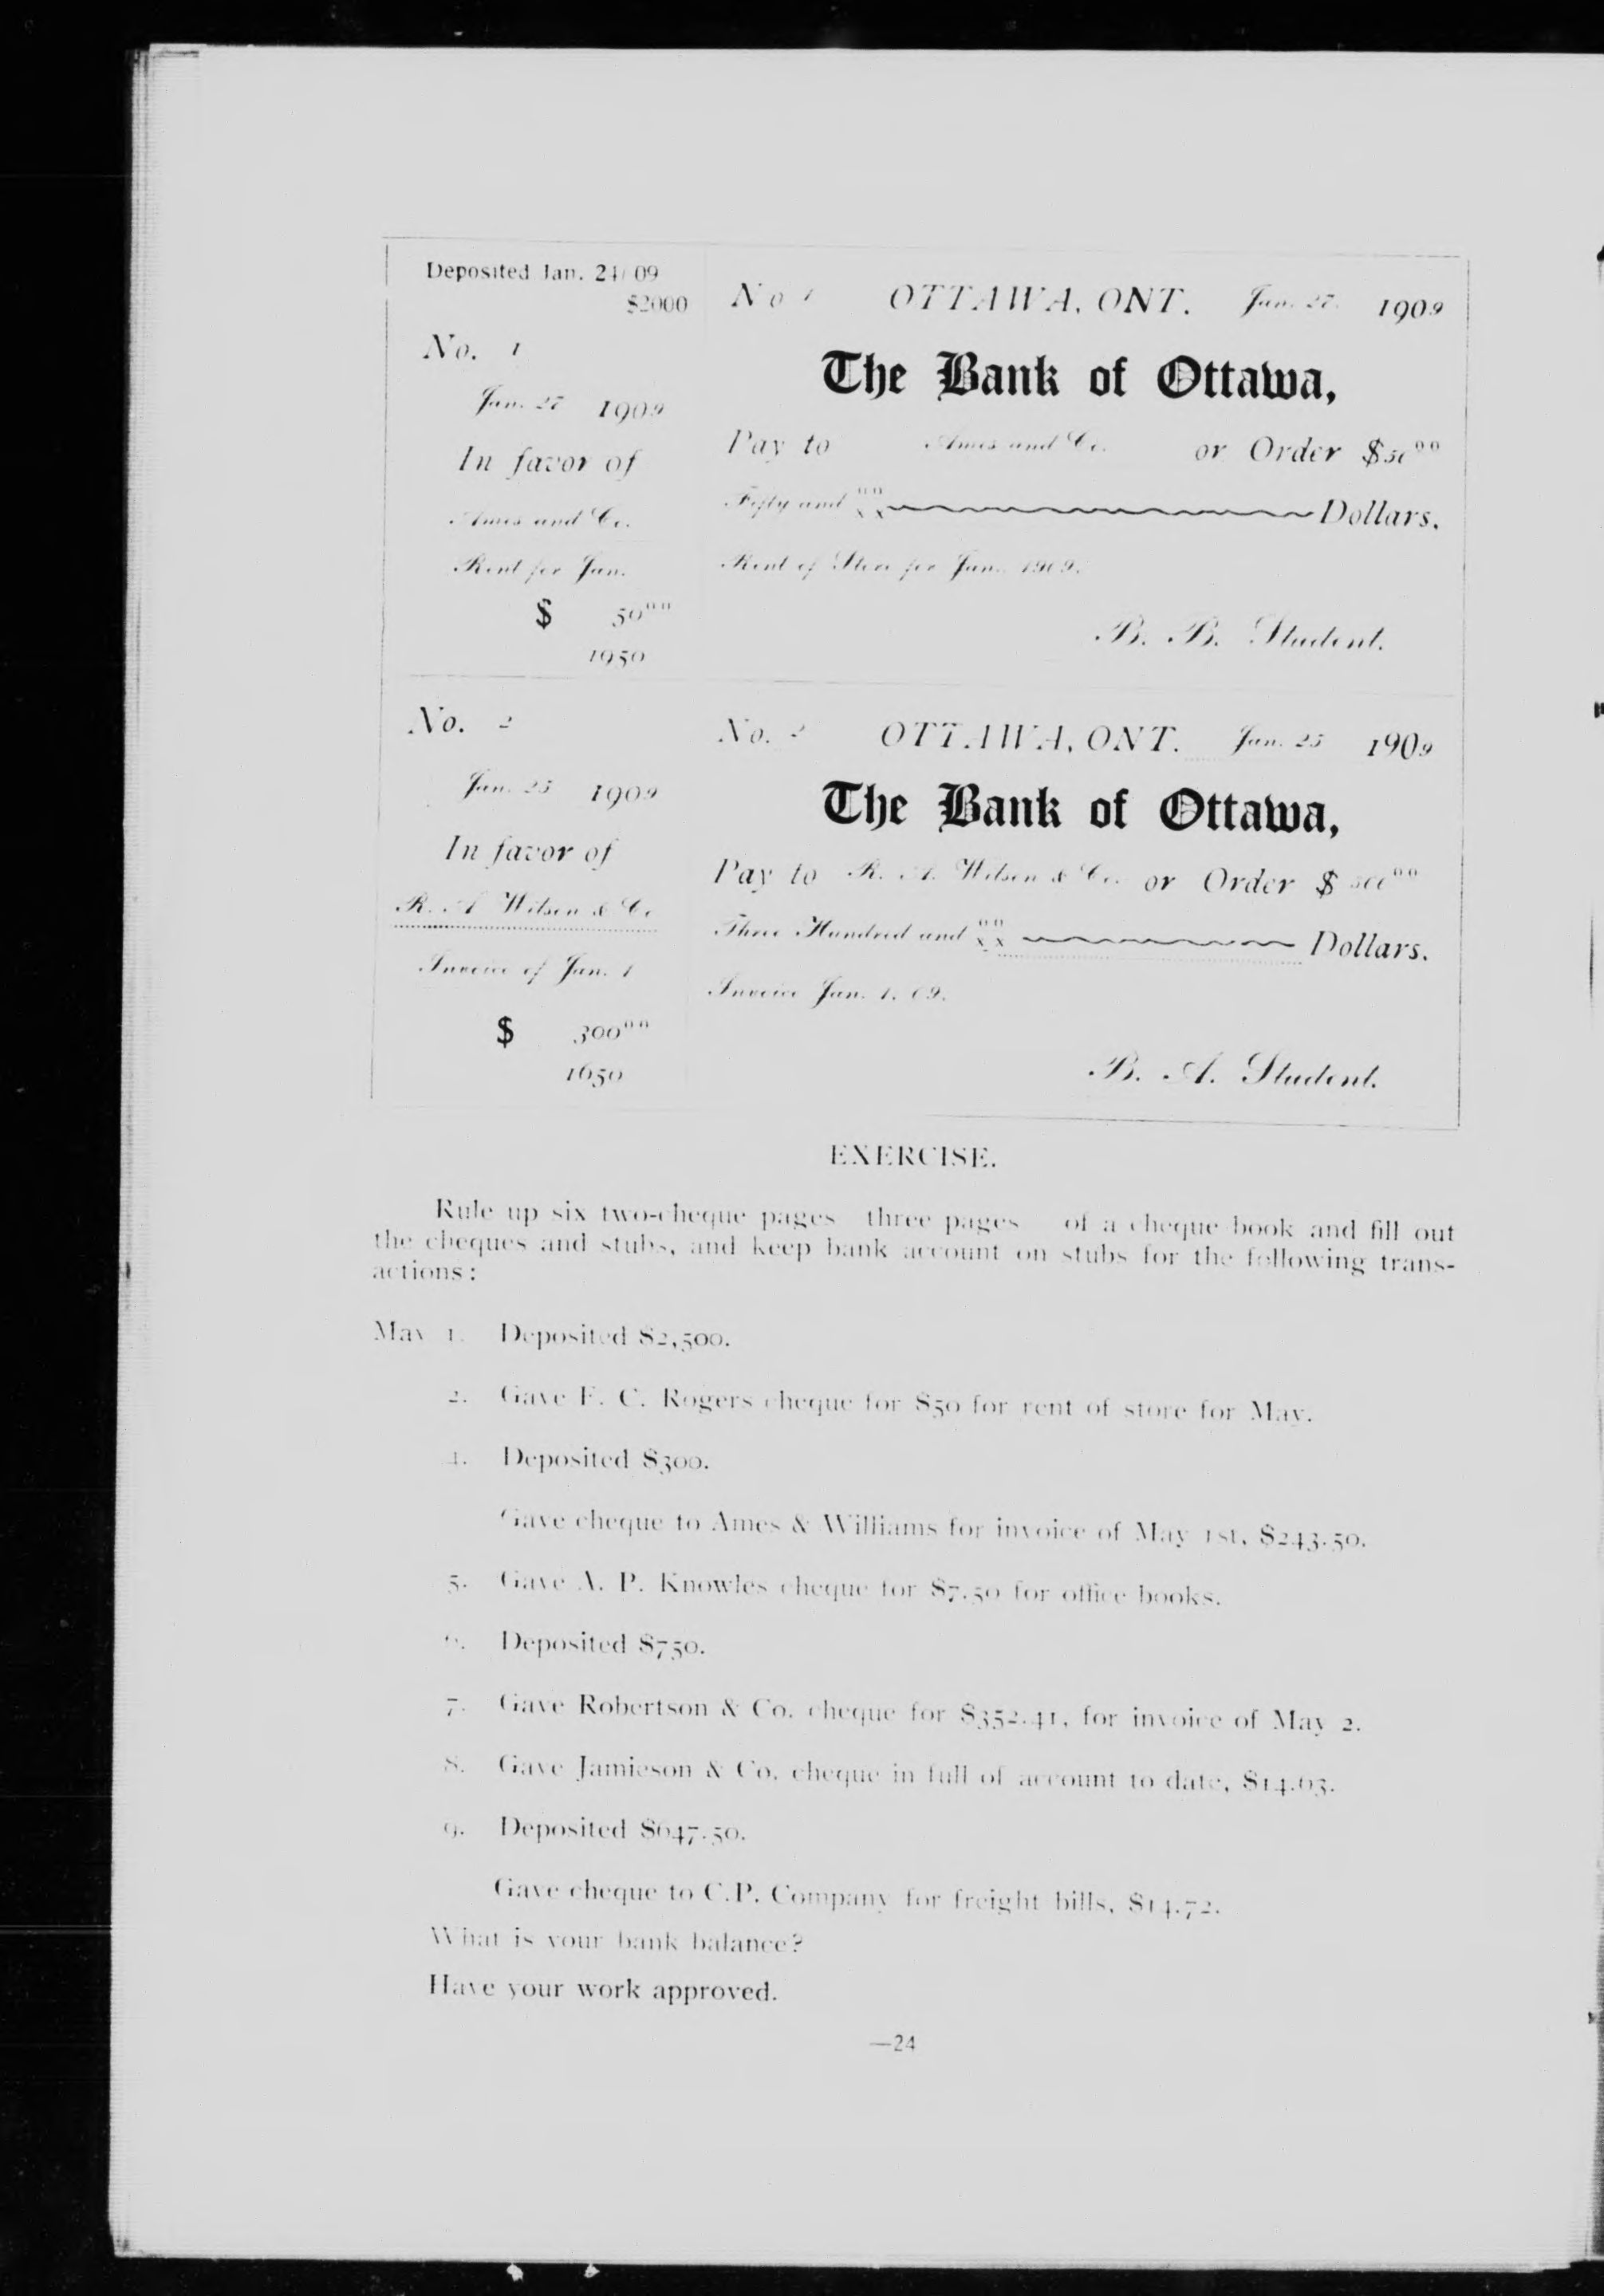 Deposited Jan. 24/09
$2000
No. 1
Jan. 27 1909
In favor of
Ames and Co.
Rent for Jan.
$ 50 00
1950
No 1 OTTAWA, ONT. Jan. 27. 1909
The Bank of Ottawa,
Pay to Ames and Co. or Order $50 00
Fifty and 00/xx Dollars.
Rent of Store for Jan. 1909.
B. B. Student.
No. 2
Jan. 25 1909
In favor of
R. A Wilson & Co
Invoice of Jan. 1
$ 300 00
1650
No. 2 OTTAWA, ONT. Jan. 25 1909
The Bank of Ottawa,
Pay to R. A. Wilson & Co. or Order $ 300 00
Three Hundred and 00/xx Dollars.
Invoice Jan. 1. 09.
B. A. Student.
EXERCISE.
Rule up six two-cheque pages three pages of a cheque book and fill out
the cheques and stubs, and keep bank account on stubs for the following trans-
actions:
May 1. Deposited $2,500.
2. Gave F. C. Rogers cheque for $50 for rent of store for May.
4. Deposited $300.
Gave cheque to Ames & Williams for invoice of May 1st, $243.50.
5. Gave A. P. Knowles cheque for $7.50 for office books.
6. Deposited $750.
7. Gave Robertson & Co. cheque for $352.41, for invoice of May 2.
8. Gave Jamieson & Co. cheque in full of account to date, $14.63.
9. Deposited $647.50.
Gave cheque to C.P. Company for freight bills, $14.72.
What is your bank balance?
Have your work approved.
—24